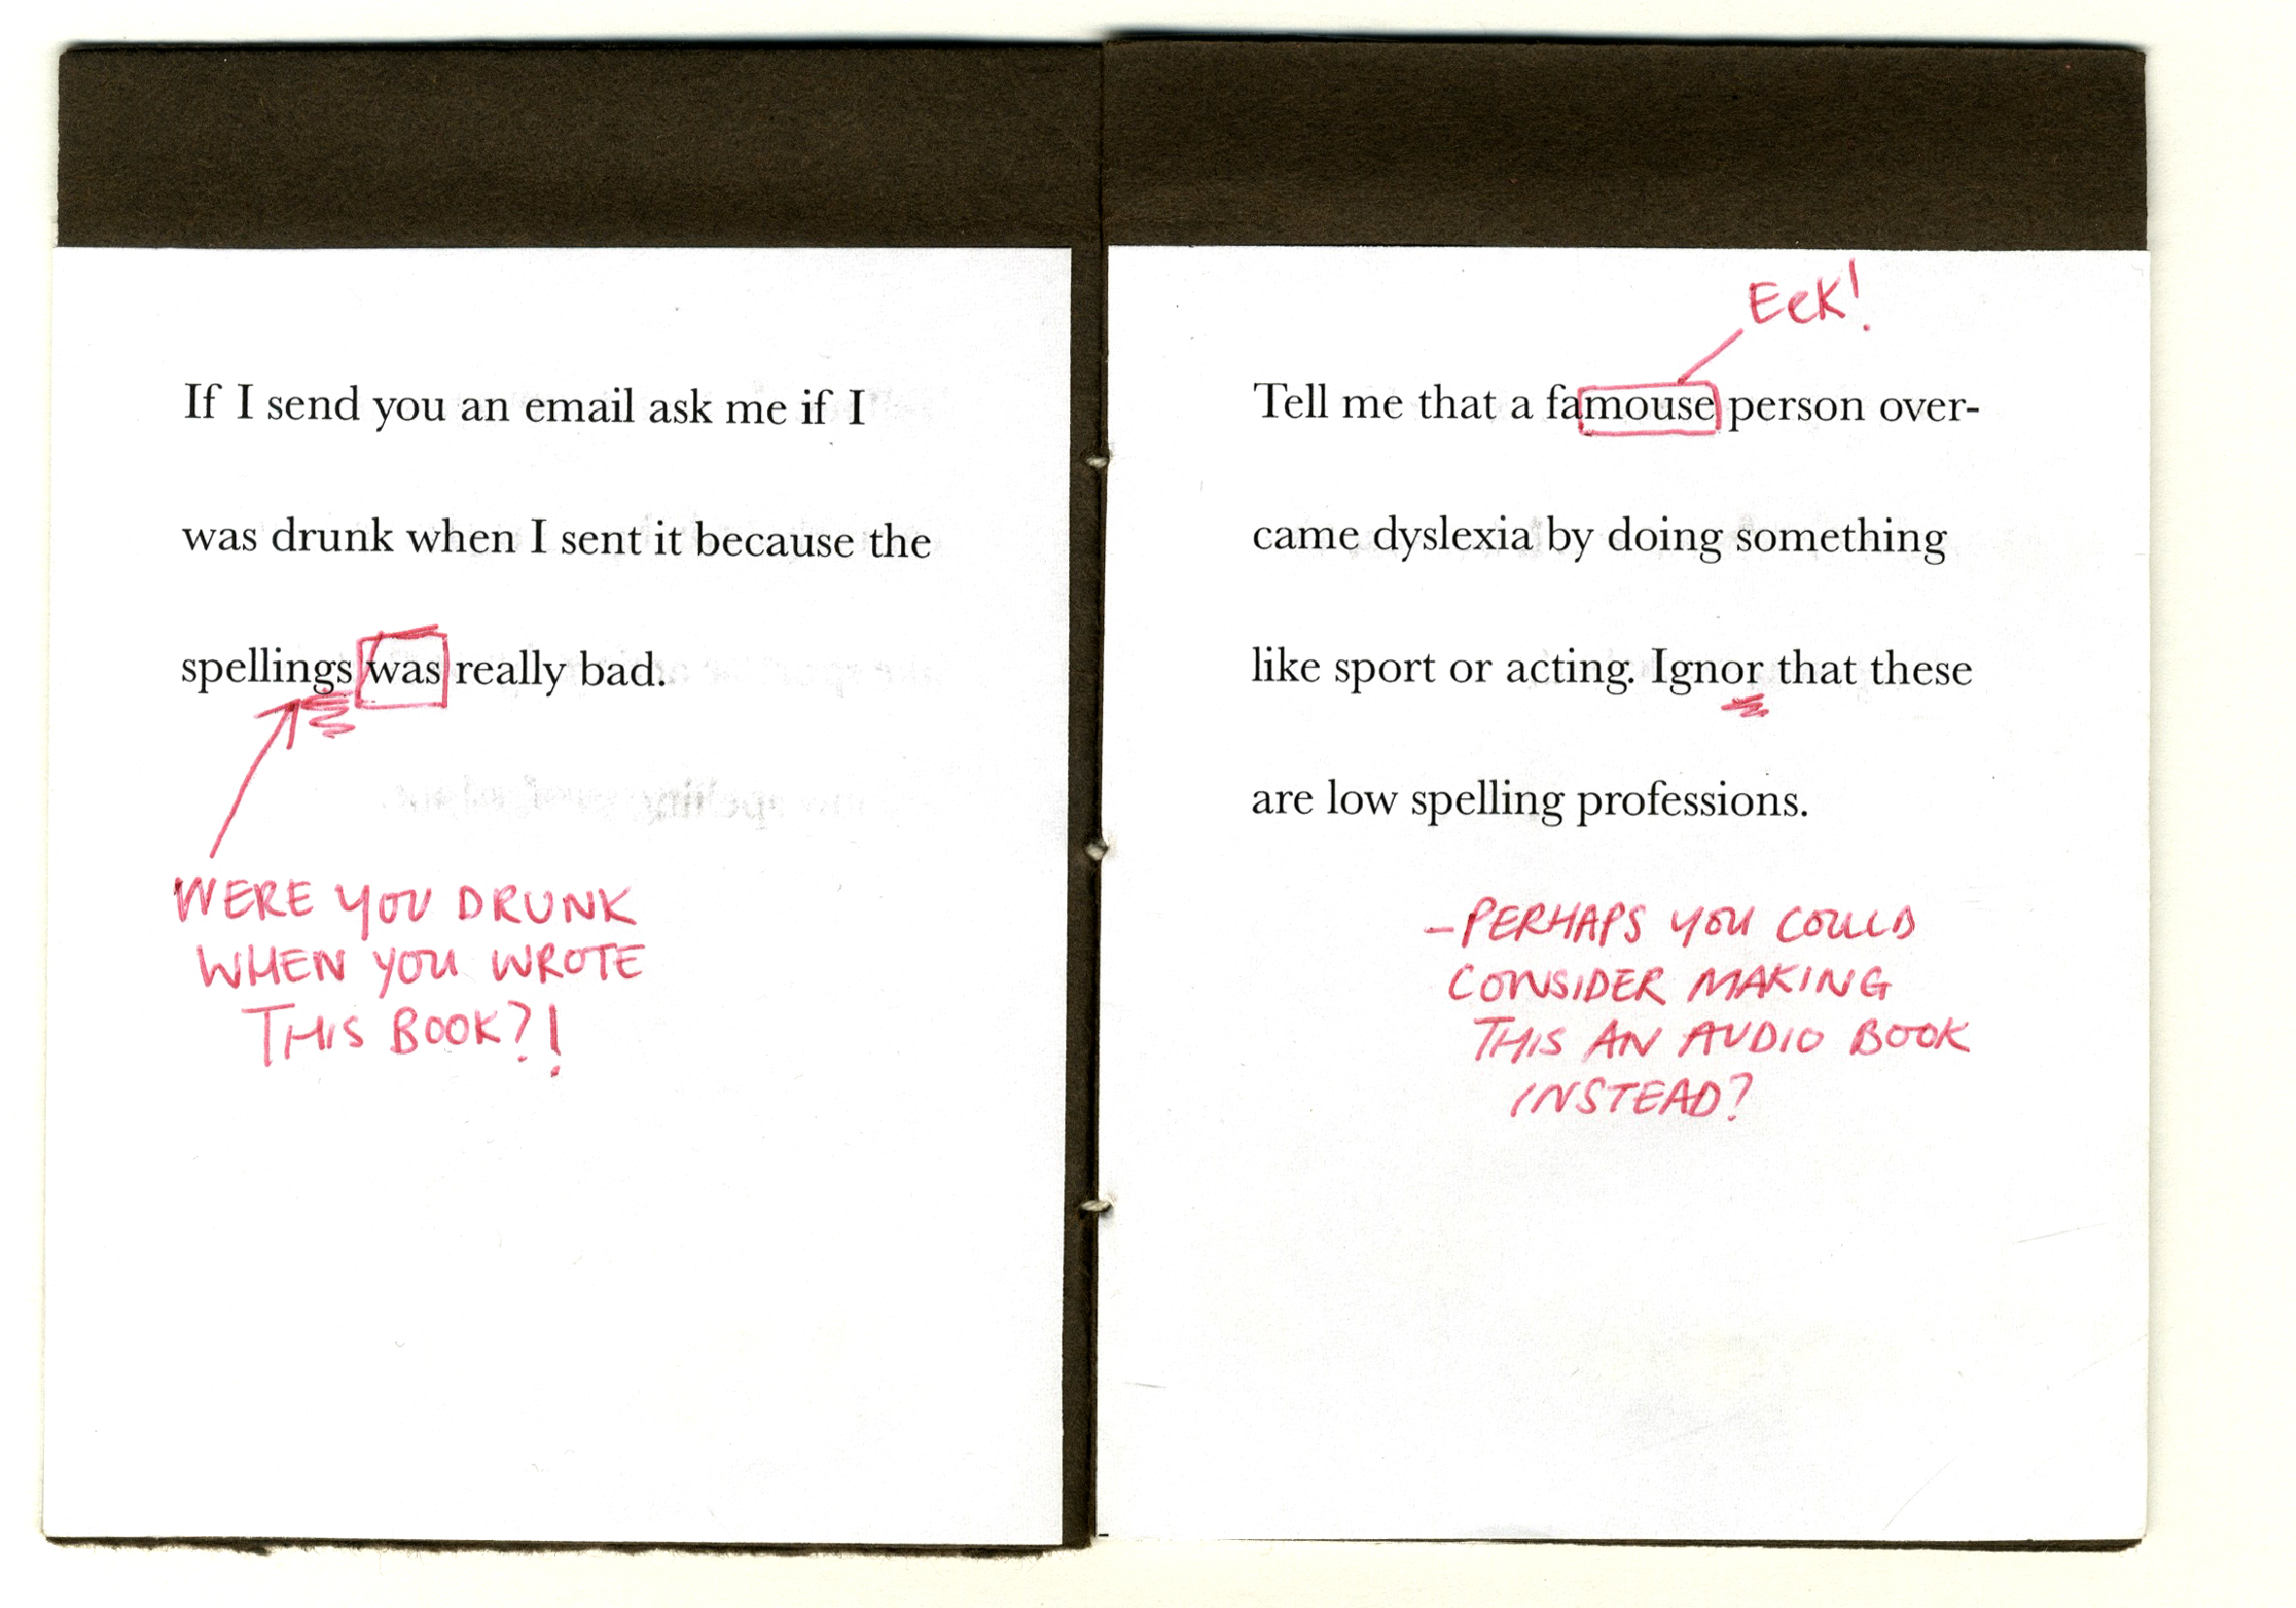 If I send you an email ask me if I
was drunk when I sent it because the
spellings was really bad.
WERE YOU DRUNK
WHEN YOU WROTE
THIS BOOK?!
EEK!
Tell me that a famouse person over-
came dyslexia by doing something
like sport or acting. Ignor that these
are low spelling professions.
-PERHAPS YOU COULD
CONSIDER MAKING
THIS AN AUDIO BOOK
INSTEAD?